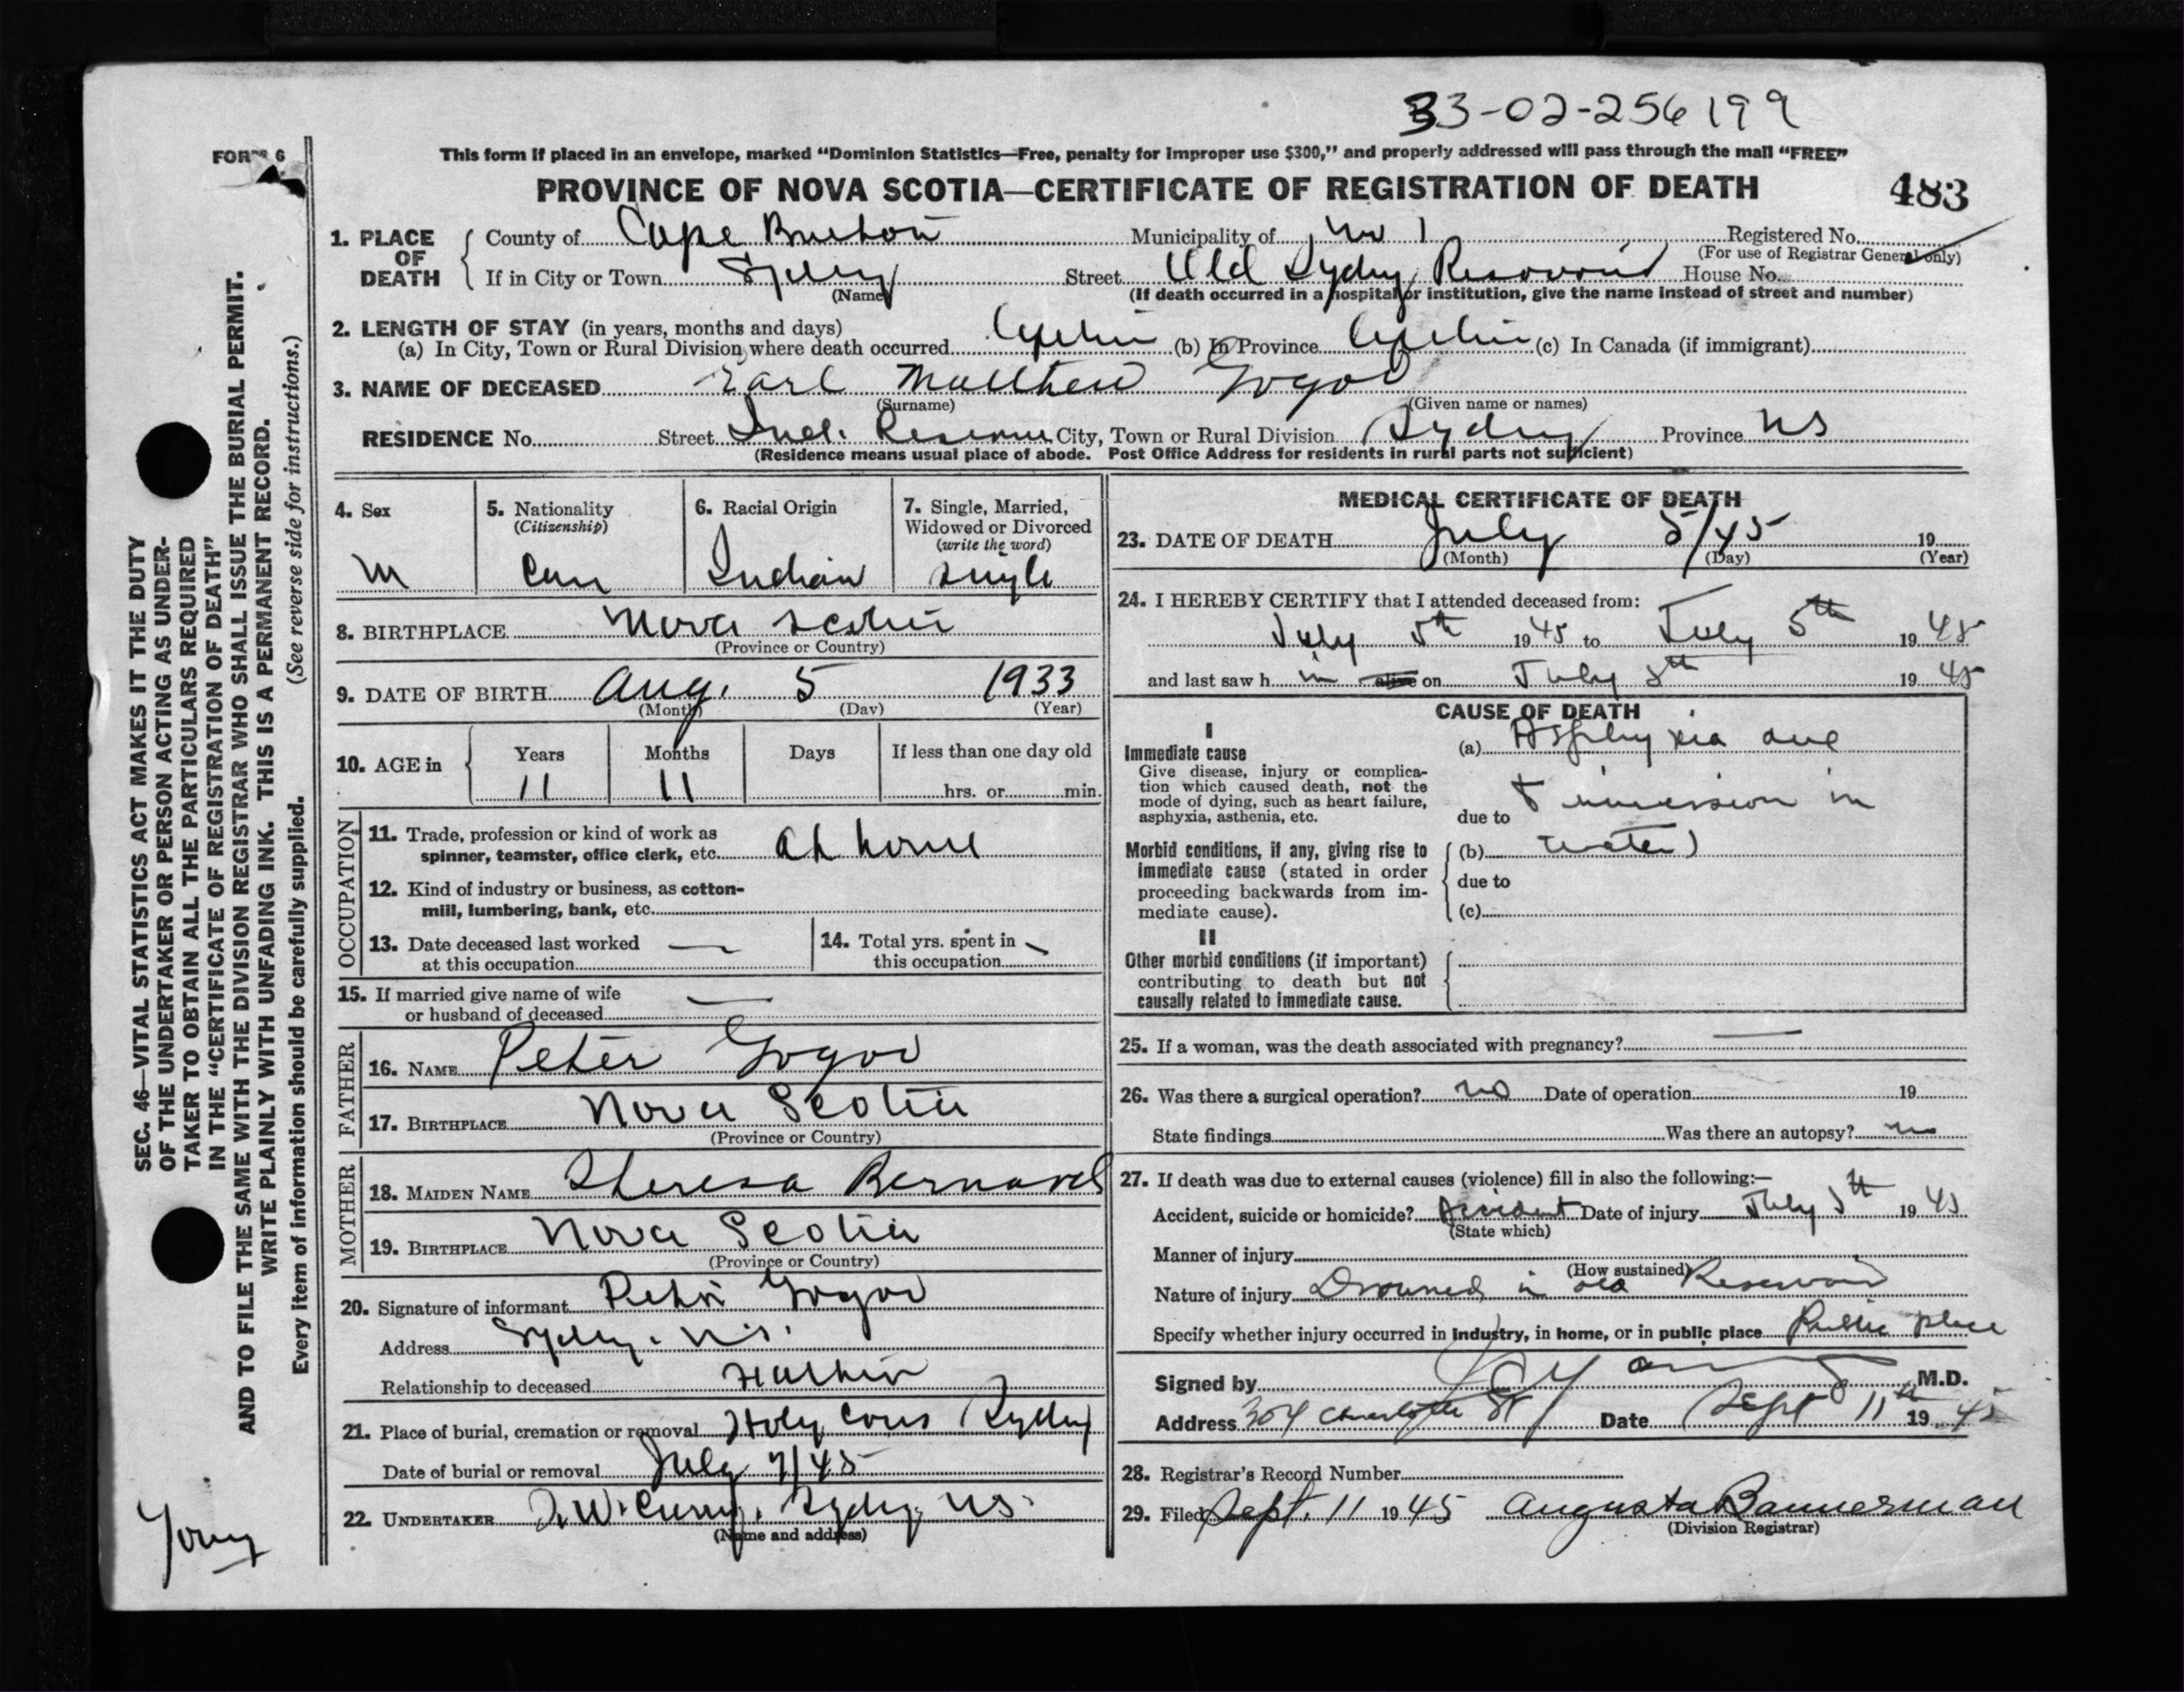 33-02-256199
FORM 6
This form if placed in an envelope, marked "Dominion Statistics—Free, penalty for improper use $300," and properly addressed will pass through the mail "FREE"
PROVINCE OF NOVA SCOTIA—CERTIFICATE OF REGISTRATION OF DEATH 483
1. PLACE OF DEATH County of Cape Breton Municipality of No 1 Registered No.
(For use of Registrar General only)
If in City or Town Sydney Street Old Sydney Reservoir House No.
(Name) (If death occurred in a hospital or institution, give the name instead of street and number)
2. LENGTH OF STAY (in years, months and days)
(a) In City, Town or Rural Division where death occurred (b) In Province (c) In Canada (if immigrant)
3. NAME OF DECEASED Earl Matthew Gogoo
(Surname) (Given name or names)
RESIDENCE No. Street Ind. Reserve City, Town or Rural Division Sydney Province NS
(Residence means usual place of abode. Post Office Address for residents in rural parts not sufficient)
4. Sex M
5. Nationality (Citizenship) Can
6. Racial Origin Indian
7. Single, Married, Widowed or Divorced (write the word) single
8. BIRTHPLACE Nova Scotia
(Province or Country)
9. DATE OF BIRTH Aug. 5 1933
(Month) (Day) (Year)
10. AGE in Years Months Days If less than one day old
11 11 hrs. or min.
OCCUPATION
11. Trade, profession or kind of work as spinner, teamster, office clerk, etc. at home
12. Kind of industry or business, as cotton-mill, lumbering, bank, etc.
13. Date deceased last worked at this occupation —
14. Total yrs. spent in this occupation —
15. If married give name of wife or husband of deceased —
FATHER
16. NAME Peter Gogoo
17. BIRTHPLACE Nova Scotia
(Province or Country)
MOTHER
18. MAIDEN NAME Theresa Bernard
19. BIRTHPLACE Nova Scotia
(Province or Country)
20. Signature of informant Peter Gogoo
Address Sydney. N.S.
Relationship to deceased Father
21. Place of burial, cremation or removal Holy Cross Sydney
Date of burial or removal July 7/45
22. UNDERTAKER W. Curry, Sydney, NS.
(Name and address)
MEDICAL CERTIFICATE OF DEATH
23. DATE OF DEATH July 5/45 19
(Month) (Day) (Year)
24. I HEREBY CERTIFY that I attended deceased from:
July 5th 1945 to July 5th 1945
and last saw h im alive on July 5th 1945
CAUSE OF DEATH
I
Immediate cause
Give disease, injury or complication which caused death, not the mode of dying, such as heart failure, asphyxia, asthenia, etc.
(a) Asphyxia due
due to to immersion in
Morbid conditions, if any, giving rise to immediate cause (stated in order proceeding backwards from immediate cause).
(b) water)
due to
(c)
II
Other morbid conditions (if important) contributing to death but not causally related to immediate cause.
25. If a woman, was the death associated with pregnancy? —
26. Was there a surgical operation? no Date of operation 19
State findings Was there an autopsy? no
27. If death was due to external causes (violence) fill in also the following:—
Accident, suicide or homicide? Accident Date of injury July 5th 1945
(State which)
Manner of injury
(How sustained)
Nature of injury Drowned in old Reservoir
Specify whether injury occurred in industry, in home, or in public place Public place
Signed by M.D.
Address 304 Charlotte St Date Sept 11th 1945
28. Registrar's Record Number
29. Filed Sept. 11 1945 Augusta Bannerman
(Division Registrar)
SEC. 46—VITAL STATISTICS ACT MAKES IT THE DUTY
OF THE UNDERTAKER OR PERSON ACTING AS UNDER-
TAKER TO OBTAIN ALL THE PARTICULARS REQUIRED
IN THE "CERTIFICATE OF REGISTRATION OF DEATH"
AND TO FILE THE SAME WITH THE DIVISION REGISTRAR WHO SHALL ISSUE THE BURIAL PERMIT.
WRITE PLAINLY WITH UNFADING INK. THIS IS A PERMANENT RECORD.
Every item of information should be carefully supplied. (See reverse side for instructions.)